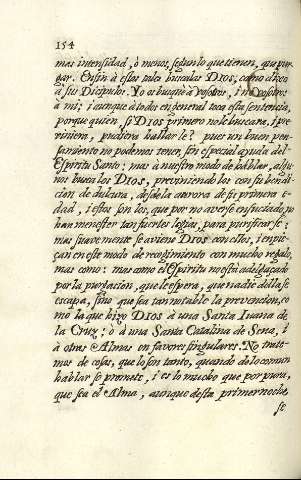 154
mas intensidad, ò menos, segun lo que tienen, que pur-
gar. Enfin à estos tales buscalos DIOS, como dixo
à sus Dicipulos: Yo os busquè à vosotros, i no vosotros
à mi; i aunque à todos en general toca esta sentencia,
porque quien, si DIOS primero no le buscara, i pre-
viniera, pudiera hallarle? pues un buen pen-
samiento no podemos tener, sin especial ayuda del
Espiritu Santo; mas à nuestro modo de hablar, algu-
nos busca los DIOS, previniendolos con su bendi-
cion de dulçura, desde la aurora de su primera e-
dad, i estos son los, que por no averse ensuciado, no
han menester tan fuertes legias, para purificarse;
mas suavemente se aviene DIOS con ellos, i empie-
çan en este modo de recogimiento con mucho regalo,
mas como: mas como el Espiritu no està adelgaçado
por la purgacion, que le espera, que nadie della se
escapa, sino que sea tan notable la prevencion, co-
mo la que hizo DIOS à una Santa Iuana de
la Cruz; ò à una Santa Catalina de Sena, i
à otras Almas en favores singulares. No trate-
mos de cosas, que lo son tanto, quando de lo comun
hablar se promete, i es lo mucho que por pura,
que sea el Alma, aunque desta primer noche,
se